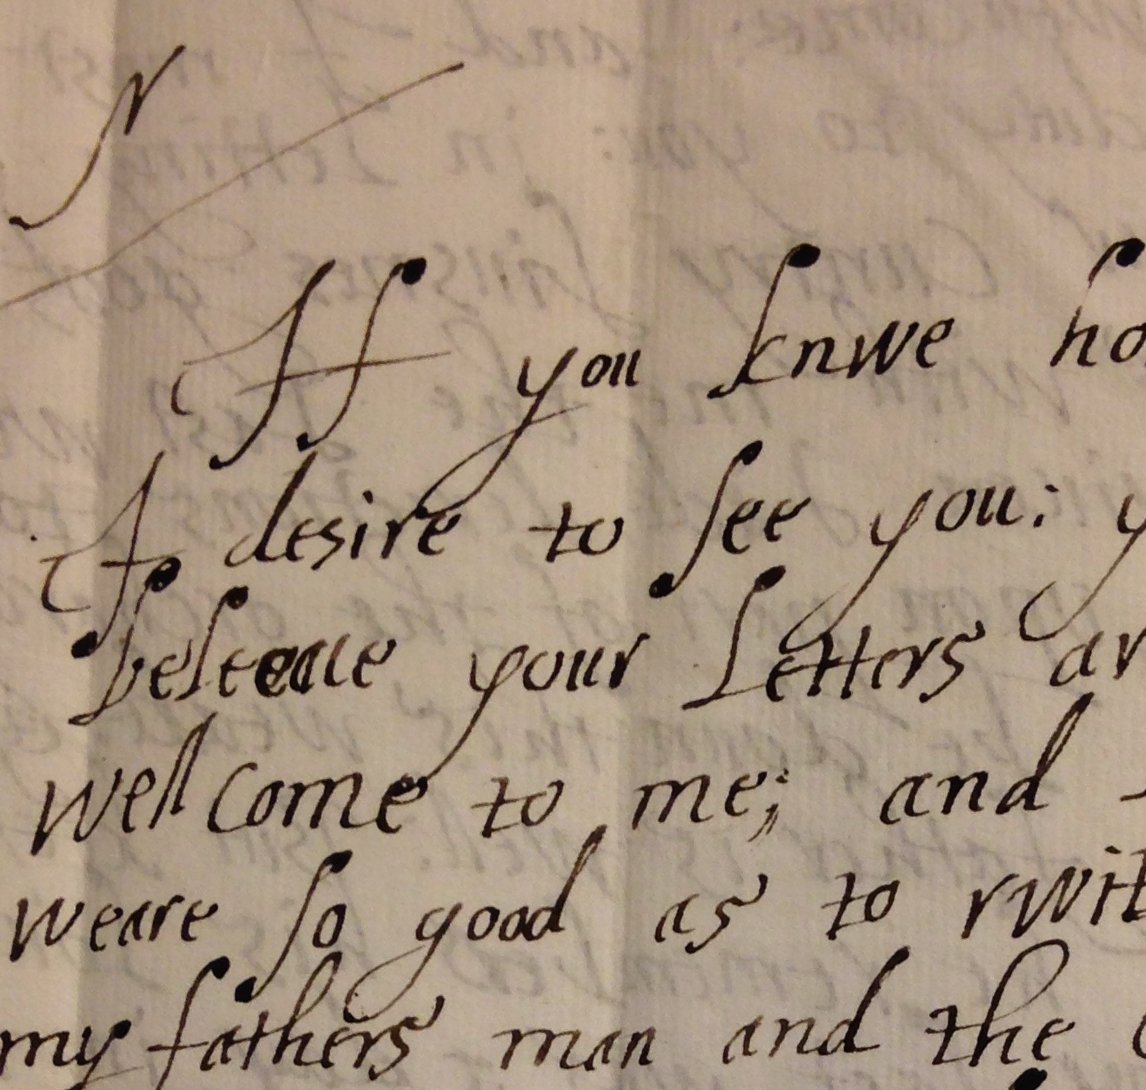 If you knwe ho
I desire to see you: y
beleeaue your Letters ar
well come to me; and
weare so good as to rwit
my fathers man and the